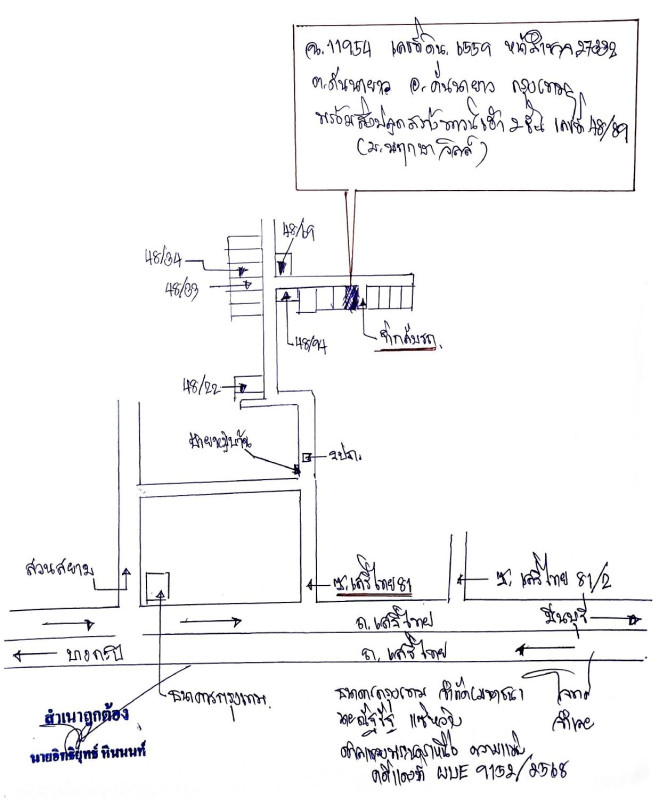 ฉ.11954 เลขที่ดิน. 6559 หน้าสำรวจ 27332
ต.คันนายาว อ.คันนายาว กรุงเทพฯ
พร้อมสิ่งปลูกสร้างทาวน์เฮ้า 2 ชั้น เลขที่ 48/89
48/69
48/34
48/33
48/94
ที่กลับรถ.
48/22
ป้ายหมู่บ้าน
รปภ.
สวนสยาม
ซ.เสรีไทย 81
ซ.เสรีไทย 81/2
ถ.เสรีไทย
มีนบุรี
บางกะปิ
ถ.เสรีไทย
ธนาคารกรุงเทพ
สำเนาถูกต้อง
นายอิทธิยุทธ์ หินนนท์
ธนาคารกรุงเทพ จำกัด(มหาชน) โจทก์
จำเลย
คดีแดงที่ ผบE 9152/2568